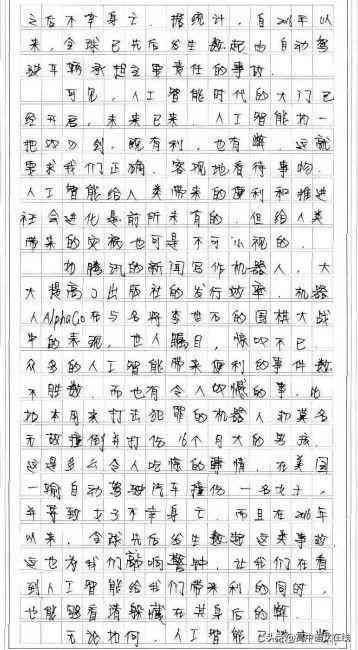 之后不幸身亡。据统计，自2016年以
来，全球已先后发生数起由自动驾
驶车辆承担主要责任的事故。
可见，人工智能时代的大门已
经开启，未来已来，人工智能如一
把 ，既有利，也有弊，这就
要求我们正确、客观地看待事物。
人工智能给人类带来的便利和推进
社会进化是前所未有的，但给人类
带来的灾祸也可是不可小视的。
如腾讯的新闻写作机器人，大
大提高了出版社的发行效率，机器
人AlphaGo在与名将李世石的围棋大战
中的表现，世人瞩目，惊叹不已
众多的人工智能带来便利的事件数
不胜数，而也有令人 的事，比
如本用来打击犯罪的机器人却莫名
无故撞倒并打伤16个月大的男孩，
这是多么令人吃惊的事情，在美国
一辆自动驾驶汽车撞伤一名女子，
并导致女子不幸身亡，而且在2016年
以来，全球先后发生数起这类事故，
这也为我们敲响警钟，让我们在看
到人工智能给我们带来利的同时，
也能够看清躲藏在其身后的弊。
无论如何，人工智能已
头条@高中语文在线